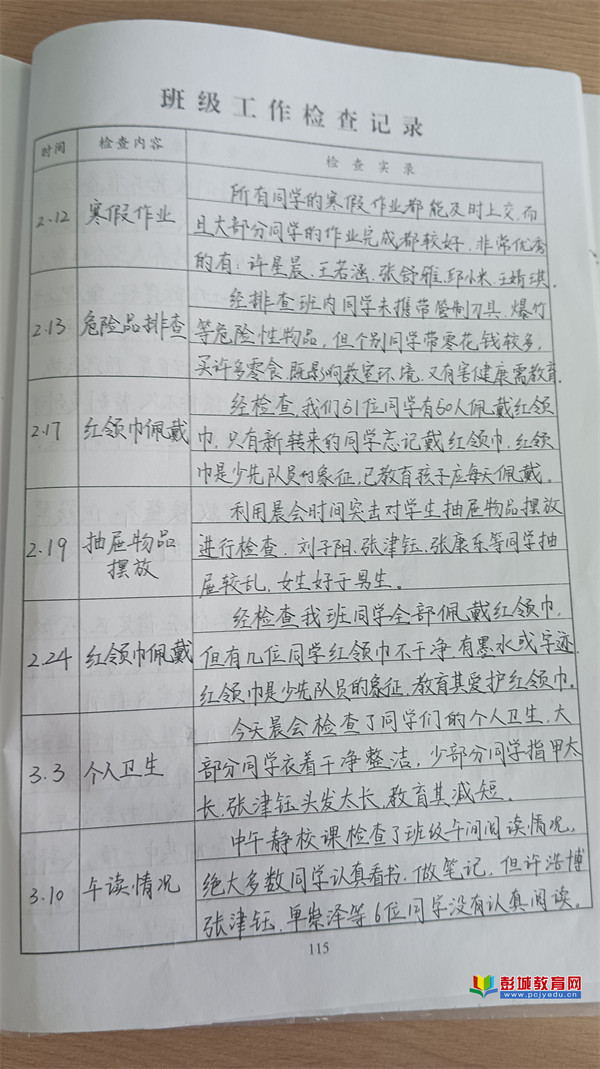 班级工作检查记录
时间 检查内容 检查实录
2.12 寒假作业
所有同学的寒假作业都能及时上交,而
且大部分同学的作业完成都较好,非常优秀
的有:许星晨、王若涵、张舒雅、邱小米、王婧琪。
2.13 危险品排查
经排查班内同学未携带管制刀具、爆竹
等危险性物品,但个别同学带零花钱较多,
买许多零食,既影响教室环境,又有害健康需教育。
2.17 红领巾佩戴
经检查,我们51位同学有50人佩戴红领
巾,只有新转来的同学忘记戴红领巾,红领
巾是少先队员的象征,已教育孩子应每天佩戴。
2.19 抽屉物品
摆放
利用晨会时间突击对学生抽屉物品摆放
进行检查,刘子阳、张津钰、张康东等同学抽
屉较乱,女生好于男生。
2.24 红领巾佩戴
经检查,我班同学全部佩戴红领巾,
但有几位同学红领巾不干净,有墨水或字迹,
红领巾是少先队员的象征,教育其爱护红领巾。
3.3 个人卫生
今天晨会检查了同学们的个人卫生,大
部分同学衣着干净整洁,少部分同学指甲太
长,张津钰头发太长,教育其减短。
3.10 午读情况
中午静校课检查了班级午间阅读情况,
绝大多数同学认真看书、做笔记,但许浩博
张津钰、单崇泽等6位同学没有认真阅读。
115
彭城教育网
www.pcjyedu.cn